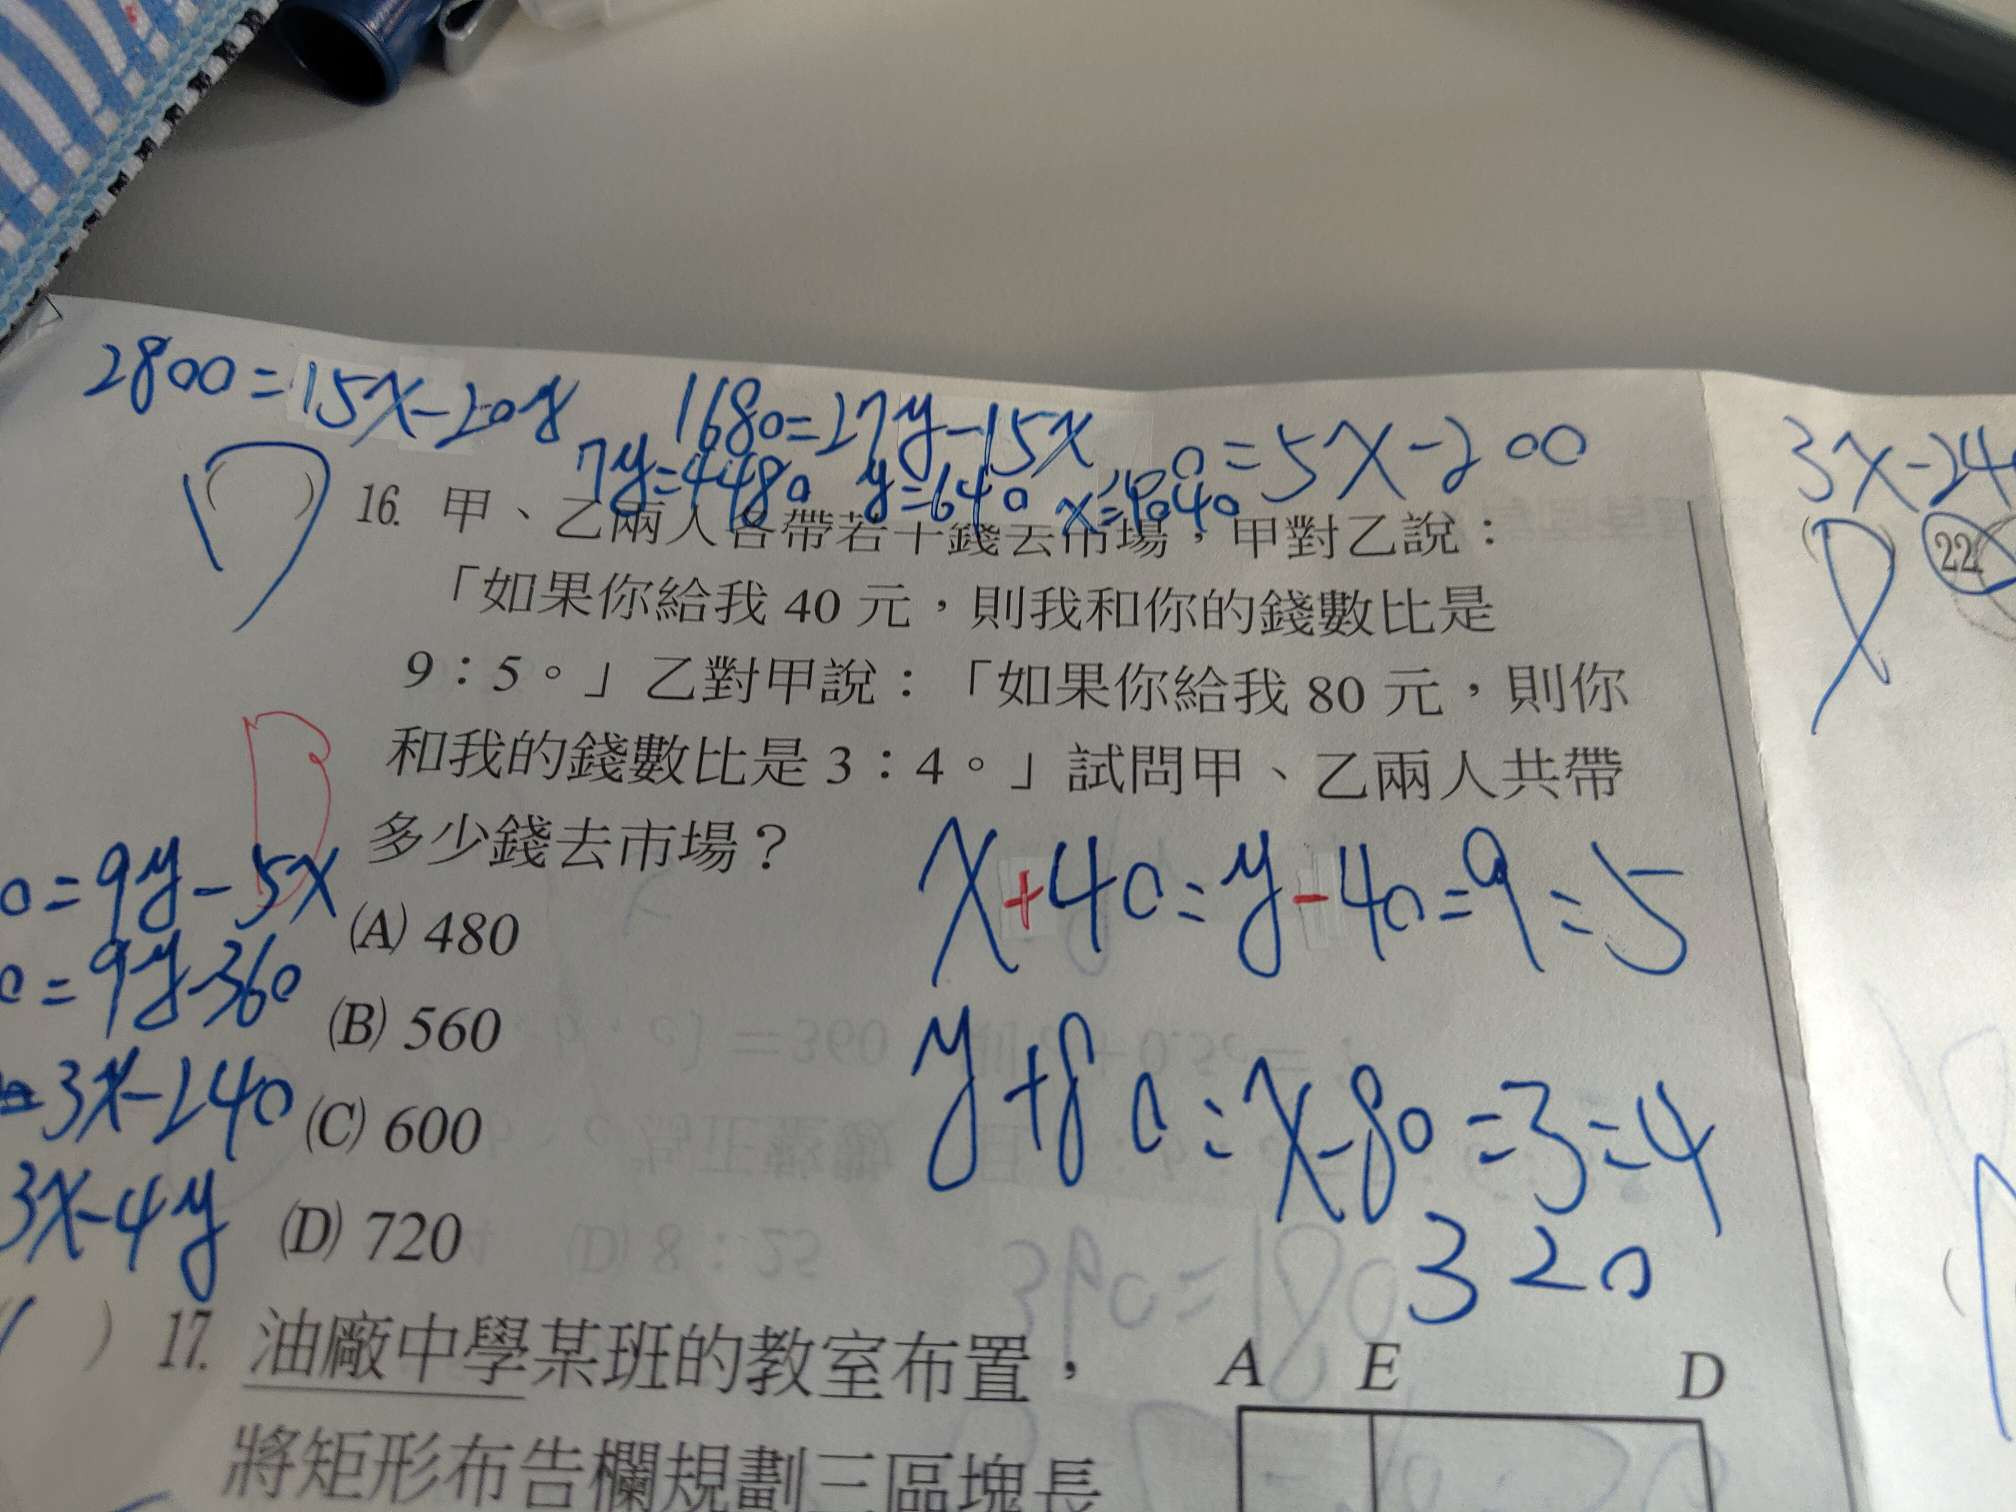 2800=15x-20y
1680=27y-15x
7y=4480 y=640 x=1040
0=5x-200
3x-240
16. 甲、乙兩人各帶若干錢去市場，甲對乙說：
「如果你給我 40 元，則我和你的錢數比是
9：5。」乙對甲說：「如果你給我 80 元，則你
和我的錢數比是 3：4。」試問甲、乙兩人共帶
多少錢去市場？
(A) 480
(B) 560
(C) 600
(D) 720
x+40:y-40=9:5
y+80:x-80=3:4
320
0=9y-5x
0=9y-360
=3x-240
3x-4y
( ) 17. 油廠中學某班的教室布置，
將矩形布告欄規劃三區塊長
A E D
22